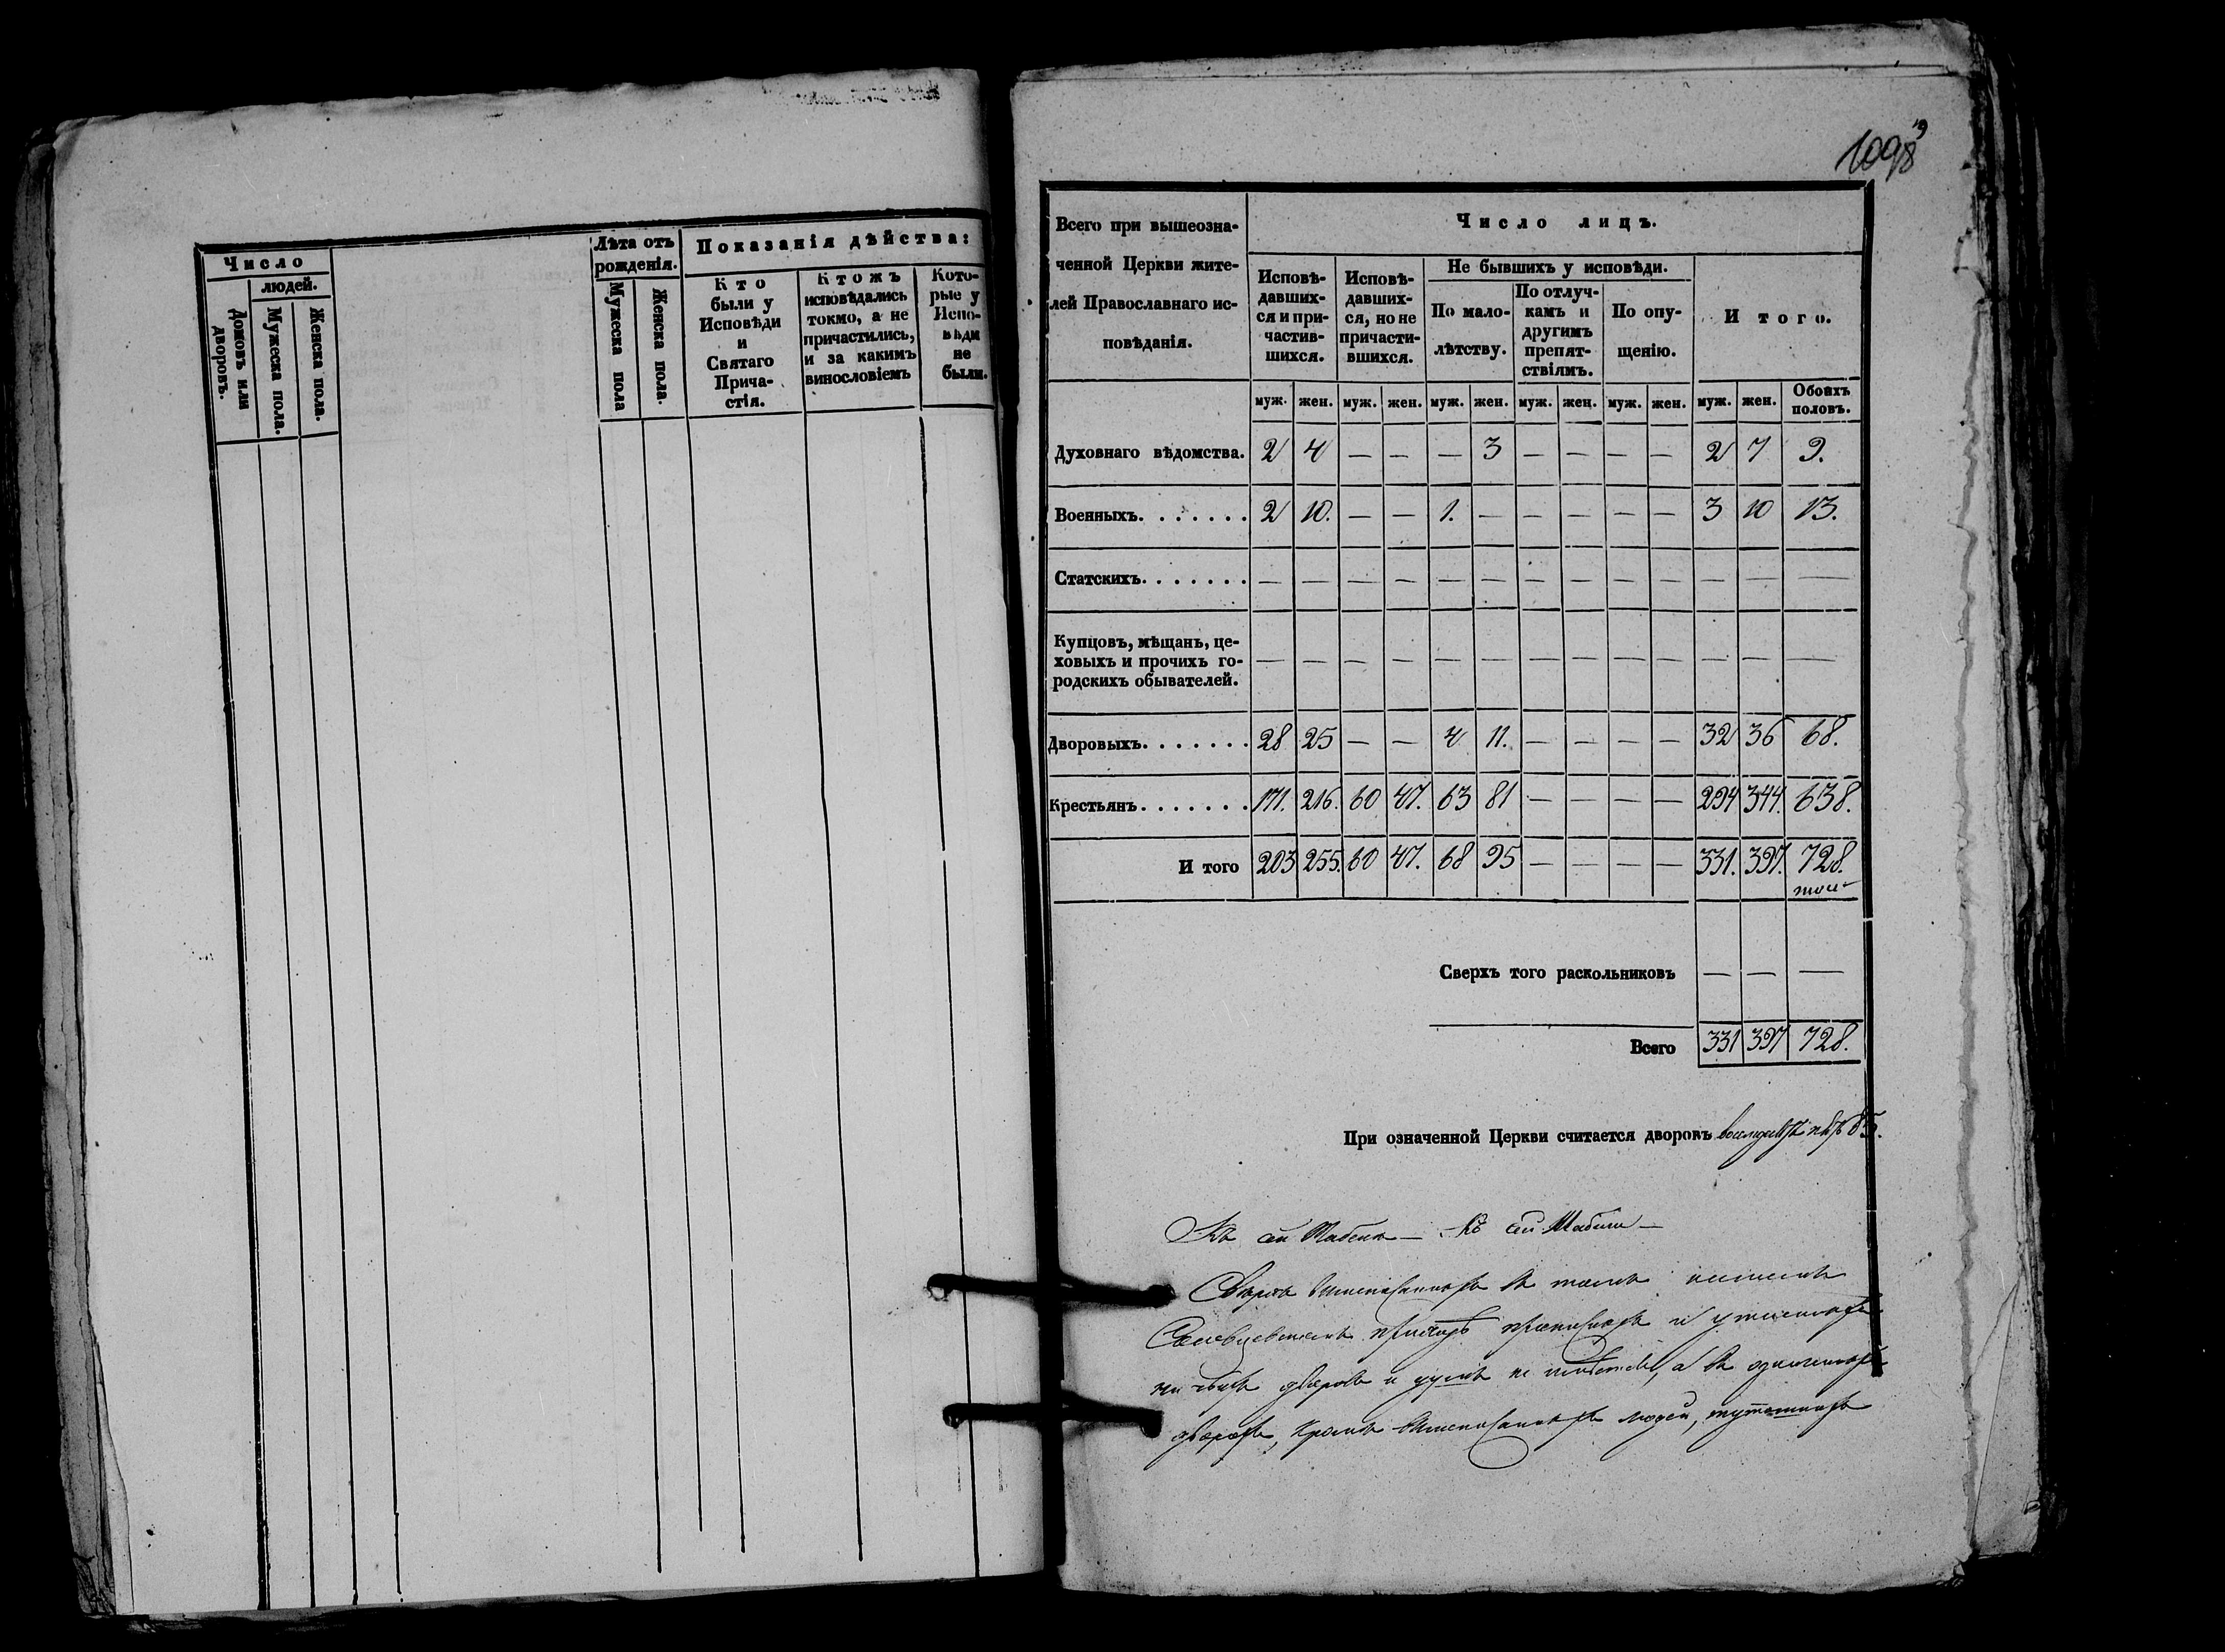 Число
людей.
Домовъ или дворовъ.
Мужеска пола.
Женска пола.
Лѣта отъ рожденія.
Мужеска пола
Женска пола.
Показанія дѣйства:
Кто
были у
Исповѣди
и
Святаго
Прича-
стія.
Ктожъ
исповѣдались
токмо, а не
причастились,
и за какимъ
винословіемъ
Кото-
рые у
Испо-
вѣди
не
были.
1098
Всего при вышеозна-
ченной Церкви жите-
лей Православнаго ис-
повѣданія.
Число лицъ.
Исповѣ-
давших-
ся и при-
частив-
шихся.
Исповѣ-
давших-
ся, но не
причасти-
вшихся.
Не бывшихъ у исповѣди.
По мало-
лѣтству.
По отлуч-
камъ и
другимъ
препят-
ствіямъ.
По опу-
щенію.
И того.
муж. жен. муж. жен. муж. жен. муж. жен. муж. жен. муж. жен. Обоихъ половъ.
Духовнаго вѣдомства. 2 4 — — — 3 — — — — 2 7 9.
Военныхъ. . . . . . . 2 10. — — 1. — — — — — 3 10 13.
Статскихъ. . . . . . . — — — — — — — — — — — — —
Купцовъ, мѣщанъ, це-
ховыхъ и прочихъ го- — — — — — — — — — — — — —
родскихъ обывателей.
Дворовыхъ. . . . . . . 28 25 — — 4 11. — — — — 32 36 68.
Крестьянъ. . . . . . . 171. 216. 60 47. 63 81 — — — — 294 344. 638.
И того 203 255. 60 47. 68 95 — — — — 331. 397. 728.
Сверхъ того раскольниковъ — — —
Всего 331 397 728.
При означенной Церкви считается дворовъ 85.
Къ сей Табели — Къ сей Табели —
приходѣ и
дворовъ и душъ не а въ
дворахъ, кромѣ людей,